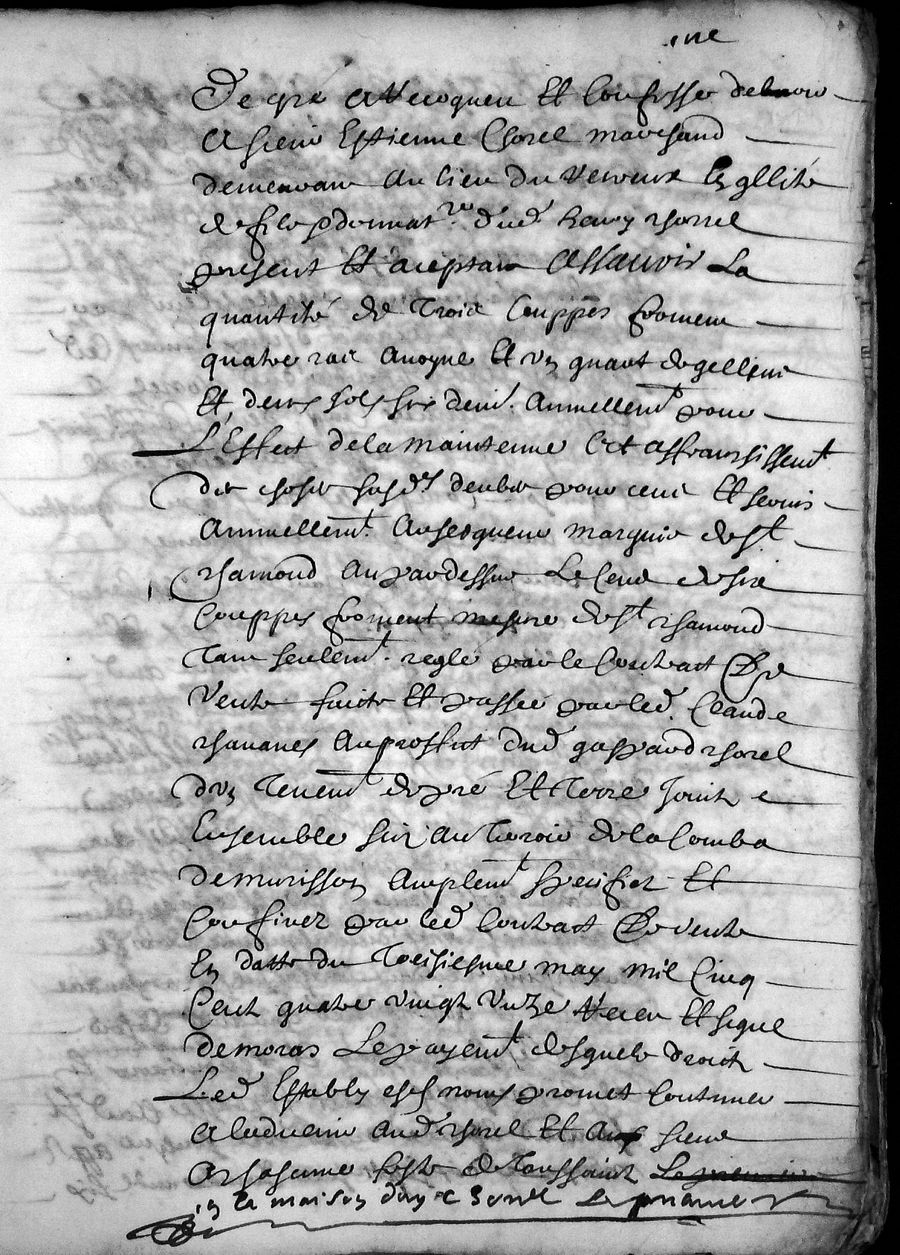 De gré a recogneu Et Confesse debvoir
a sieur Estienne Chorel marchand
demeurant au lieu du Verneux En qllité
de filz donnat.re dud Henry chorrel
present Et aceptant Assavoir La
quantité de Trois Couppes froment
quatre ras avoyne Et un quart de gelline
Et deux solz six deni. Annuellemt pour
L'Effect de la maintenue Et affranssissemt
des choses susd.s deube pour cens Et servis
Annuellemt. Au seigneur marquis de St
chamond Au par dessus Le Cens de six
Couppes froment mesure de St chamond
Tant seulemt. reglé par le Contract De
Vente faicte Et passée par led. Claude
chavanes Au proffict dud gaspard chorel
d'un Tenemt de pré Et Terre Joinct
Ensemble sis Au Teroir de la Comba
de murisson Amplemt speciffié Et
Confiné par led Contract De vente
En datte du Troisiesme may mil Cinq
Cent quatre vingt unze receu Et signé
de moras Le payemt. desquels droict
Led Estably promet Continuer
a l'advenir Aud chorel Et Aux siens
a chascune feste de Toussainct Le premier
en la maison dud Le premier